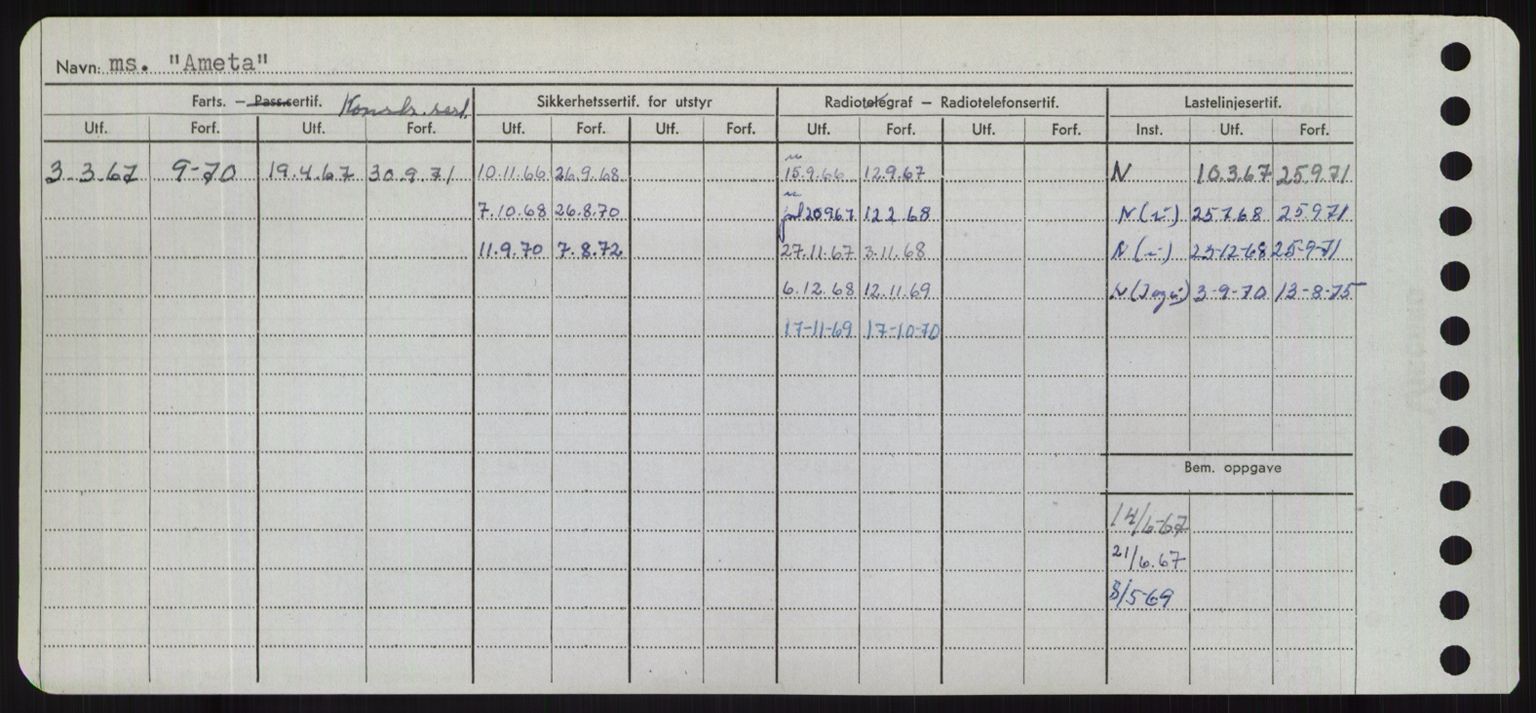 Navn: ms. "Ameta"
Farts. — Pass.sertif. Konstr. sert. Sikkerhetssertif. for utstyr Radiotelegraf — Radiotelefonsertif. Lastelinjesertif.
Utf. Forf. Utf. Forf. Utf. Forf. Utf. Forf. Utf. Forf. Utf. Forf. Inst. Utf. Forf.
3-3.67 9-70 19.4.67 30.9.71 10.11.66 26.9.68 15.9.66 12.9.67 N 10.3.67 25.9.71
7.10.68 26.8.70 20.9.67 12.2.68 N (i) 25.7.68 25.9.71
11.9.70 7.8.72 27.11.67 3.11.68 N (i) 23-12-68 25-9-71
6.12.68 12.11.69 N 3-9-70 13-8-75
17-11-69 17-10-70
Bem. oppgave
14/6-67
21/6.67
8/5-69